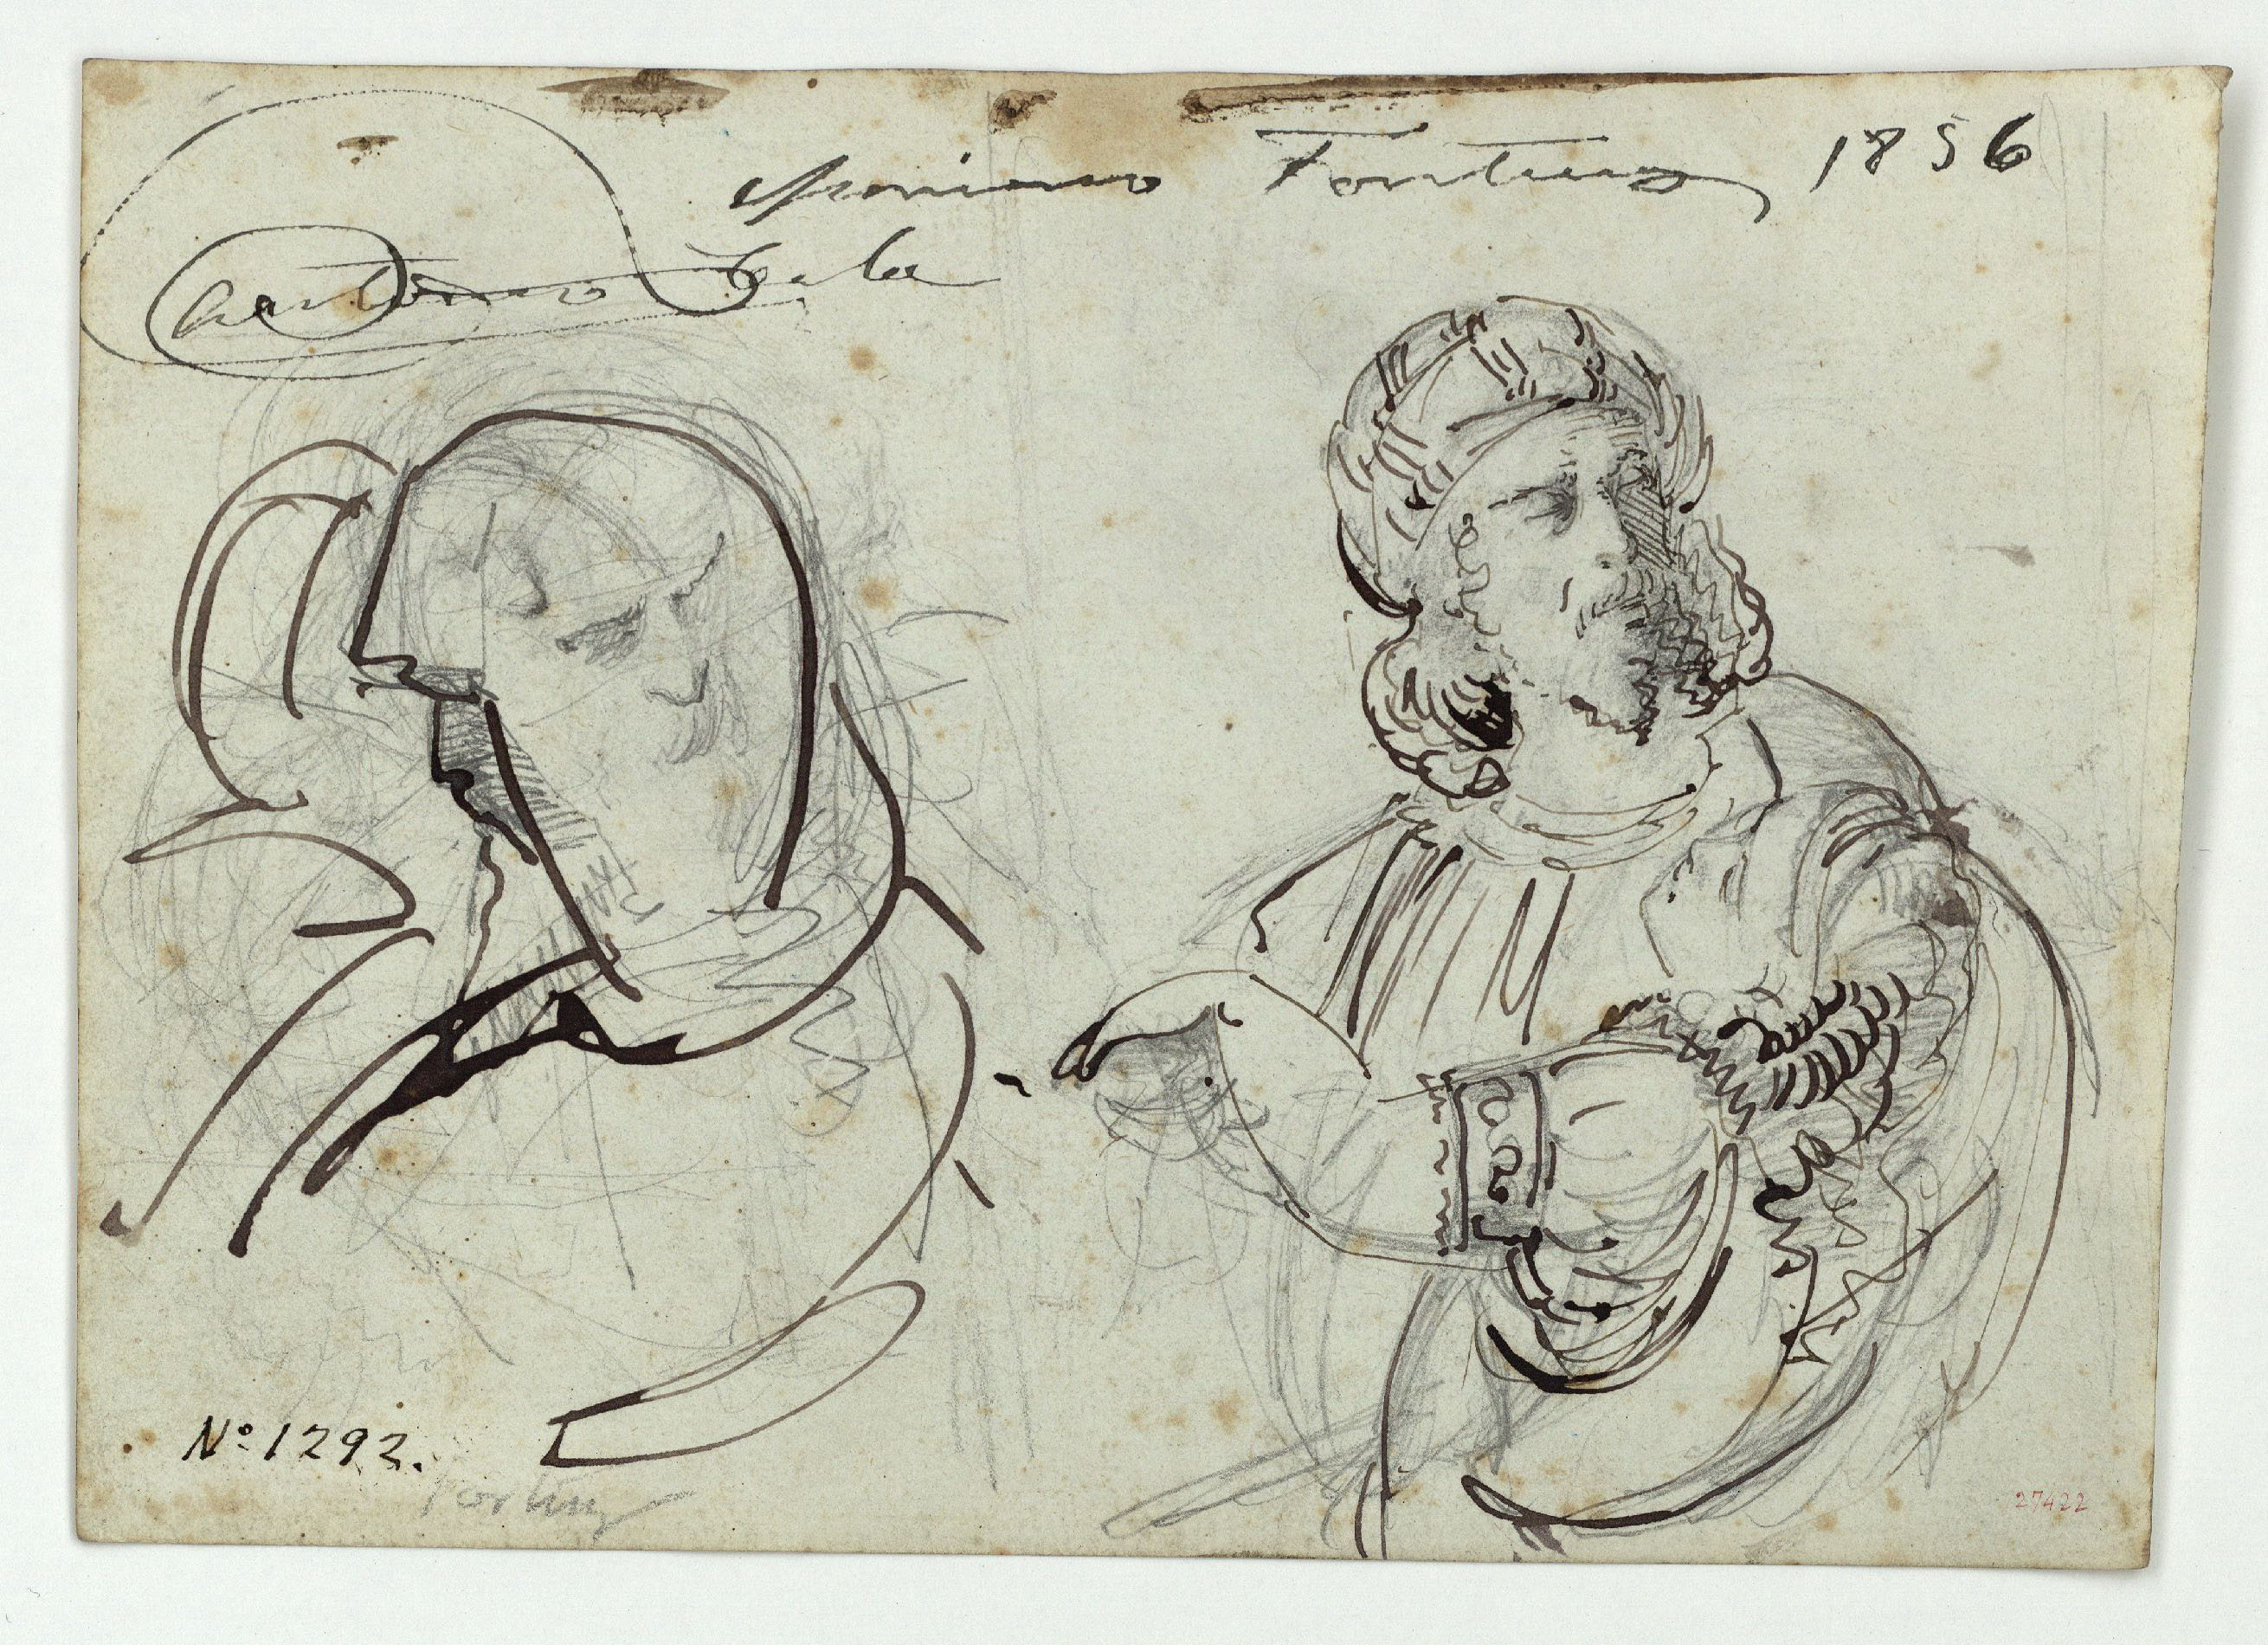 Mariano Fortuny 1856
Antonio
Nº 1292.
Fortuny
27422